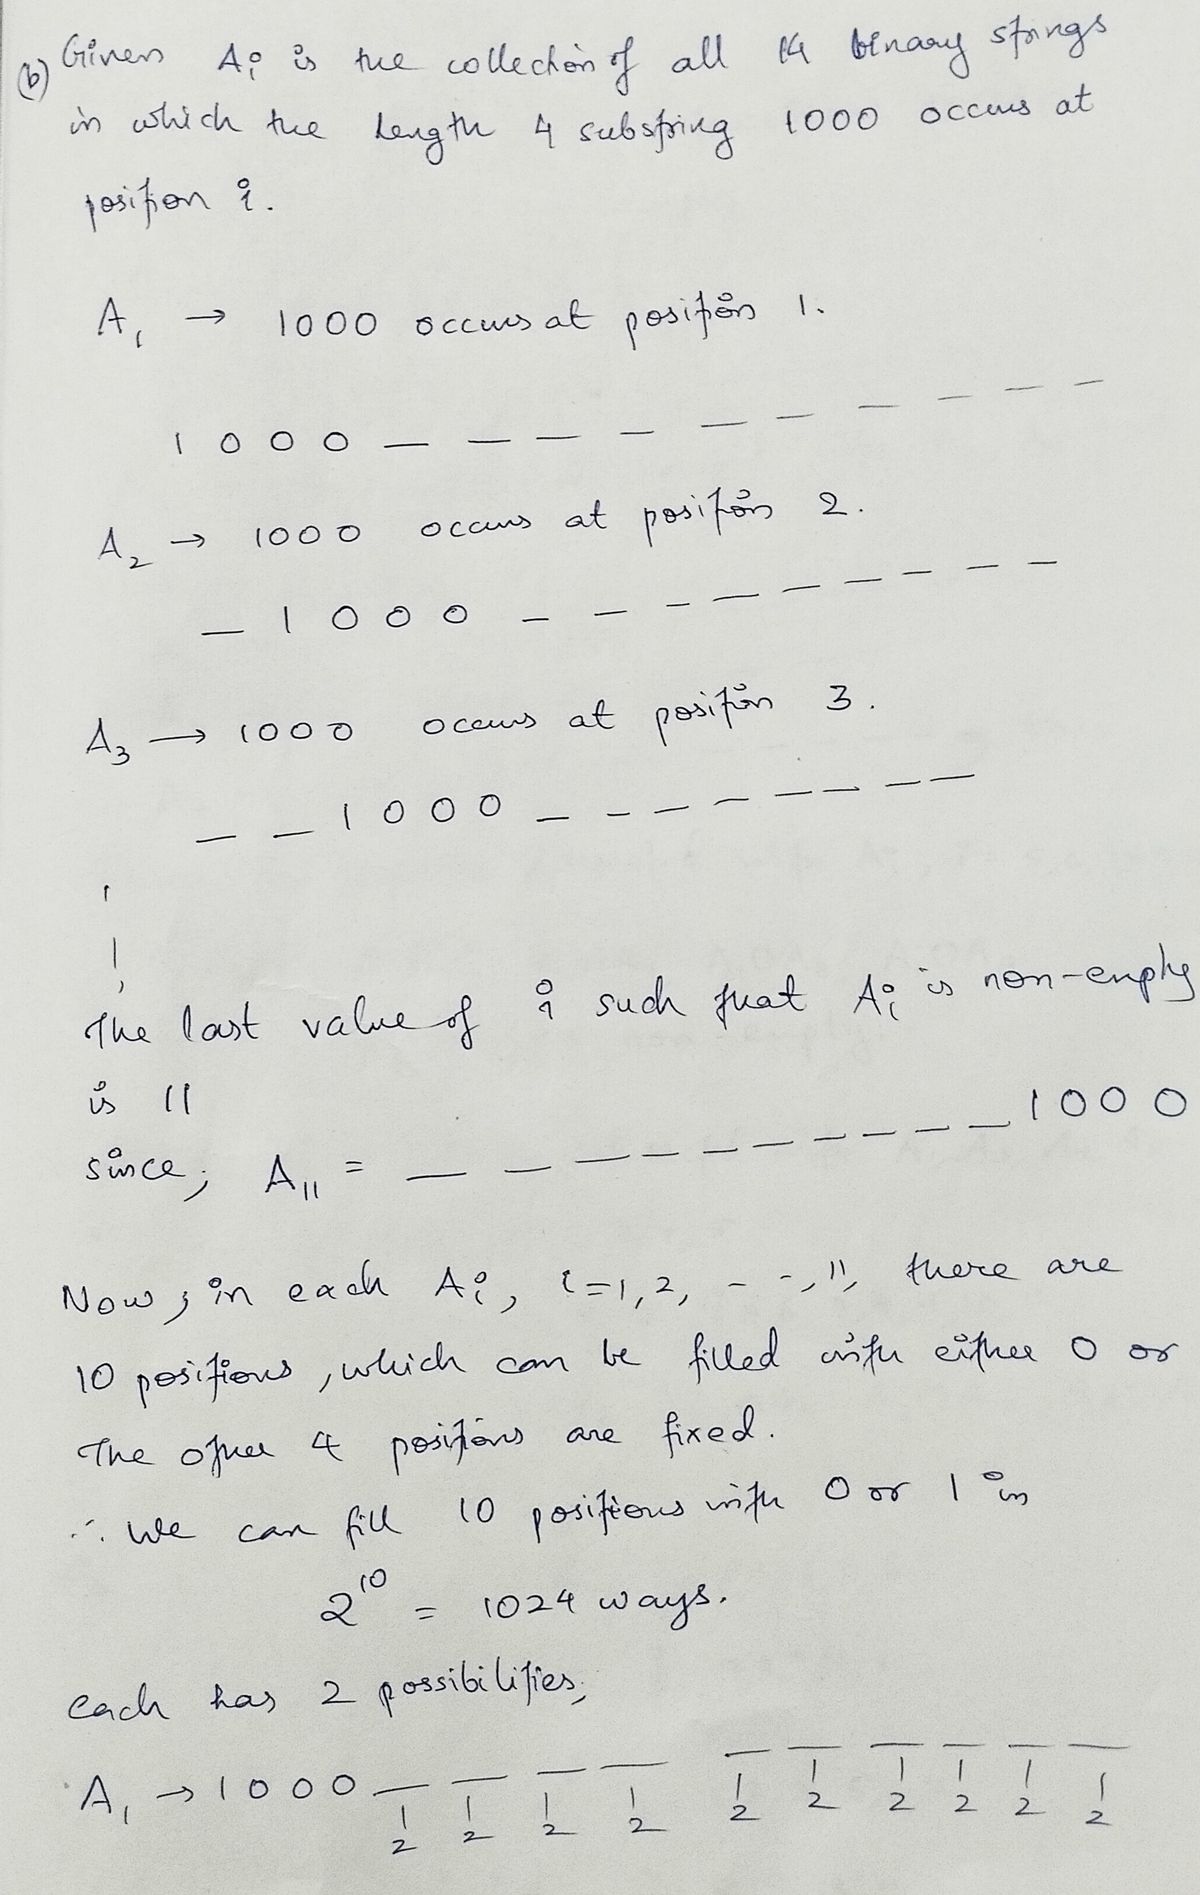 (b) Given Ai is the collection of all 14 binary strings
in which the length 4 substring 1000 occurs at
position i.
A1 → 1000 occurs at position 1.
1 0 0 0 _ _ _ _ _ _ _ _ _ _
A2 → 1000 occurs at position 2.
_ 1 0 0 0 _ _ _ _ _ _ _ _ _
A3 → 1000 occurs at position 3.
_ _ 1 0 0 0 _ _ _ _ _ _ _ _
The last value of i such that Ai is non-empty
is 11
since, A11 = _ _ _ _ _ _ _ _ _ _ 1 0 0 0
Now, in each Ai, i=1,2, - -, 11, there are
10 positions, which can be filled with either 0 or
The other 4 positions are fixed.
∴ We can fill 10 positions with 0 or 1 in
2^10 = 1024 ways.
Each has 2 possibilities,
A1 → 1 0 0 0 _ _ _ _ _ _ _ _ _ _
2 2 2 2 2 2 2 2 2 2